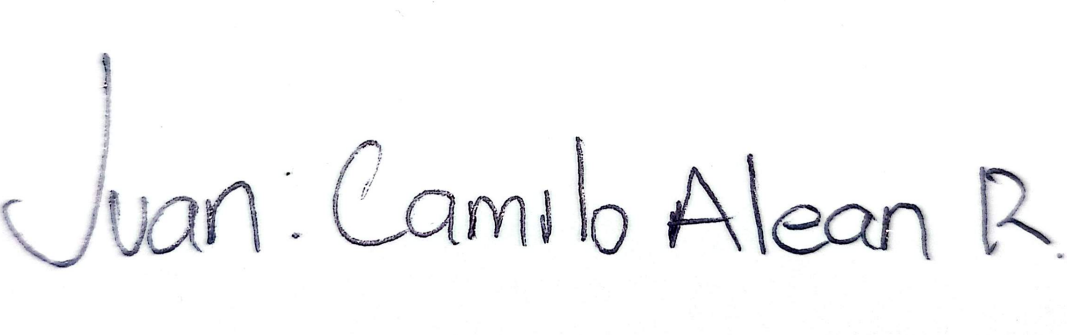 Juan: Camilo Alean R.